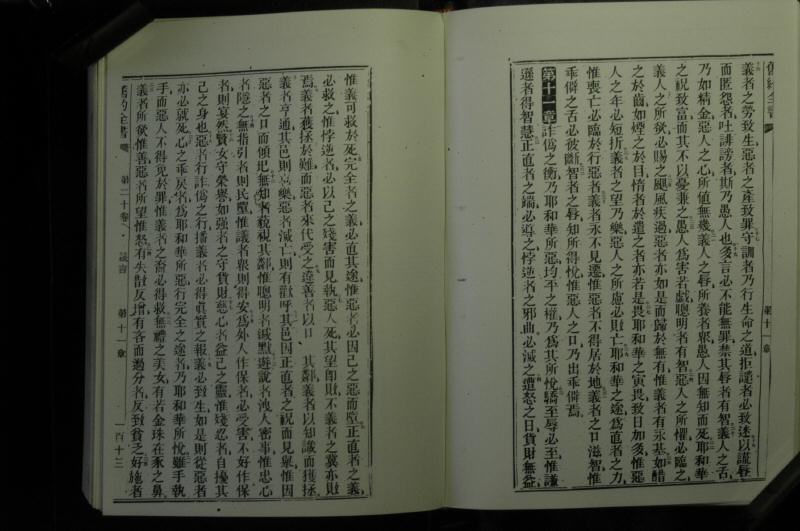 義者之勞致生惡者之產致罪守訓者乃行生命之道拒譴者必致迷以謊辱
而匿怨者吐誹謗者斯乃愚人也多言必不能無罪禁其脣者有智義人之舌
乃如精金惡人之心所值無幾義人之脣所養者衆愚人因無知而死耶和華
之祝致富而其不以憂兼之愚人爲害若戲聰明者有智惡人之所懼必臨之
義人之所欲必賜之颶風疾過惡者亦如是而歸於無有惟義者有永基如醋
之於齒如煙之於目惰者於遣之者亦若是畏耶和華之寅畏致日加多惟惡
人之年必短折義者之望乃樂惡人之所慮必敗亡耶和華之途爲直者之力
惟喪亡必臨於行惡者義者永不見遷惟惡者不得居於地義者之口滋智惟
乖僻之舌必被斷智者之脣知所得悅惟惡人之口乃出乖僻焉
第十一章詐僞之衡乃耶和華所惡均平之權乃爲其所悅驕至辱必至惟謙
遜者得智慧正直者之端必導之悖逆者之邪曲必滅之遭怒之日貨財無益
第十一章
惟義可救於死完全者之義必直其途惟惡者必因己之惡而墮正直者之義
必救之惟悖逆者必以己之殘害而見執惡人死其望卽敗不義者之冀亦敗
焉義者獲拯於難而惡者來代受之違善者以口 其鄰義者以知識而獲拯
義者亨通其邑則喜樂惡者滅亡則有歡呼其邑因正直者之祝而見舉惟因
惡者之口而傾圮無知者藐視其鄰惟聰明者緘默遊說者洩人密事惟忠心
者隱之無指引者則民墮惟議者衆則得安爲外人作保者必受害不好作保
者則宴然賢女守榮譽如强者之守貨財慈心者益己之靈惟殘忍者自擾其
己之身也惡者行詐僞之行播義者必得眞實之報義必致生如是則從惡者
亦必就死心之乖戾者爲耶和華所惡行完全之途者乃耶和華所悅雖手執
手而惡人不得免於罪惟義者之裔必得救無禮之美女有若金珠在豕之鼻
義者所欲惟善惡者所望惟怒有失散反增有吝而過分者反致貧乏好施者
舊約全書 第二十卷 箴言 第十一章 一百十三